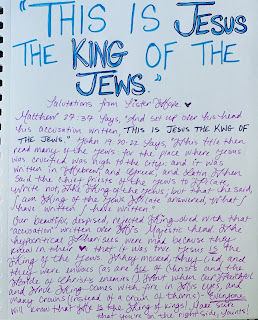 "THIS IS JESUS
THE KING OF THE
JEWS."
Salutations from Sister Hope. ♥
Matthew 27:37 says, "And set up over his head
his accusation written, THIS IS JESUS THE KING OF
THE JEWS." John 19:20-22 says, "This title then
read many of the Jews: for the place where Jesus
was crucified was nigh to the city: and it was
written in Hebrew, and Greek, and Latin. Then
said the chief priests of the Jews to Pilate,
Write not, The King of the Jews; but that he said,
I am King of the Jews. Pilate answered, What I
have written I have written."
Our beautiful, despised, rejected King died with that
"accusation" written over His Majestic head. The
hypocritical Pharisees were mad because they
knew in their ♥ that it was true. Jesus IS the
King of the Jews. They mocked, they lied, and
they were envious (as are all of Christ's and the
Bride of Christ's enemies). But when our Faithful
and True King comes with fire in His eyes, and
many crowns (instead of a crown of thorns), everyone
will know that He is the King of kings. Make sure
that you're on the right side, Saints!